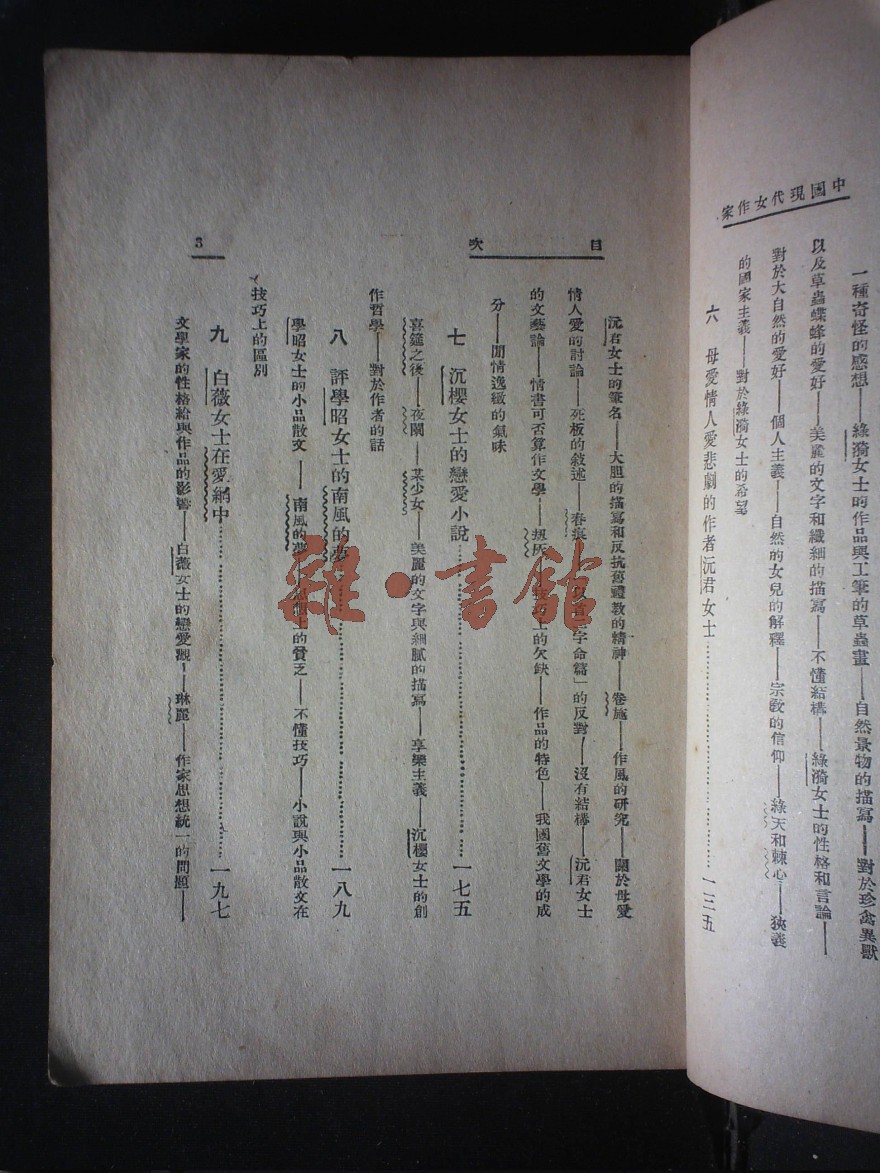 中國現代女作家
一種奇怪的感想——綠漪女士的作品與工筆的草蟲畫——自然景物的描寫——對於珍禽異獸
以及草蟲蝶蜂的愛好——美麗的文字和纖細的描寫——不懂結構——綠漪女士的性格和言論——
對於大自然的愛好——個人主義——自然的女兒的解釋——宗敎的信仰——綠天和棘心——狹義
的國家主義——對於綠漪女士的希望
六 母愛情人愛悲劇的作者沅君女士……………………一三五
目次
沅君女士的筆名——大胆的描寫和反抗舊禮敎的精神——卷葹——作風的研究——關於母愛
情人愛的討論——死板的敘述——春痕——以首二字命篇」的反對——沒有結構——沅君女士
的文藝論——情書可否算作文學——刼灰——技巧上的欠缺——作品的特色——我國舊文學的成
分——閒情逸緻的氣味
七 沉櫻女士的戀愛小說……………………一七五
喜筵之後——夜闌——某少女——美麗的文字與細膩的描寫——享樂主義——沉櫻女士的創
作哲學——對於作者的話
八 評學昭女士的南風的夢……………………一八九
學昭女士的小品散文——南風的夢——思想上的貧乏——不懂技巧——小說與小品散文在
技巧上的區別
九 白薇女士在愛網中……………………一九七
文學家的性格給與作品的影響——白薇女士的戀愛觀——琳麗——作家思想統一的問題——
3
雜·書館